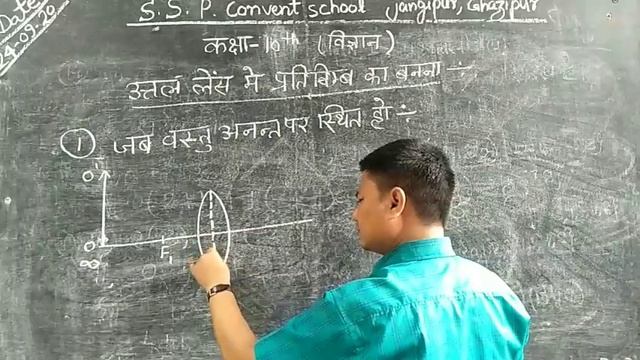 Date
24.09.20
S. S. P. Convent school Jangipur, Ghazipur
कक्षा-10th (विज्ञान)
उत्तल लेंस मे प्रतिबिम्ब का बनना ÷
① जब वस्तु अनन्त पर स्थित हो ÷
O'
O
F₁
∞